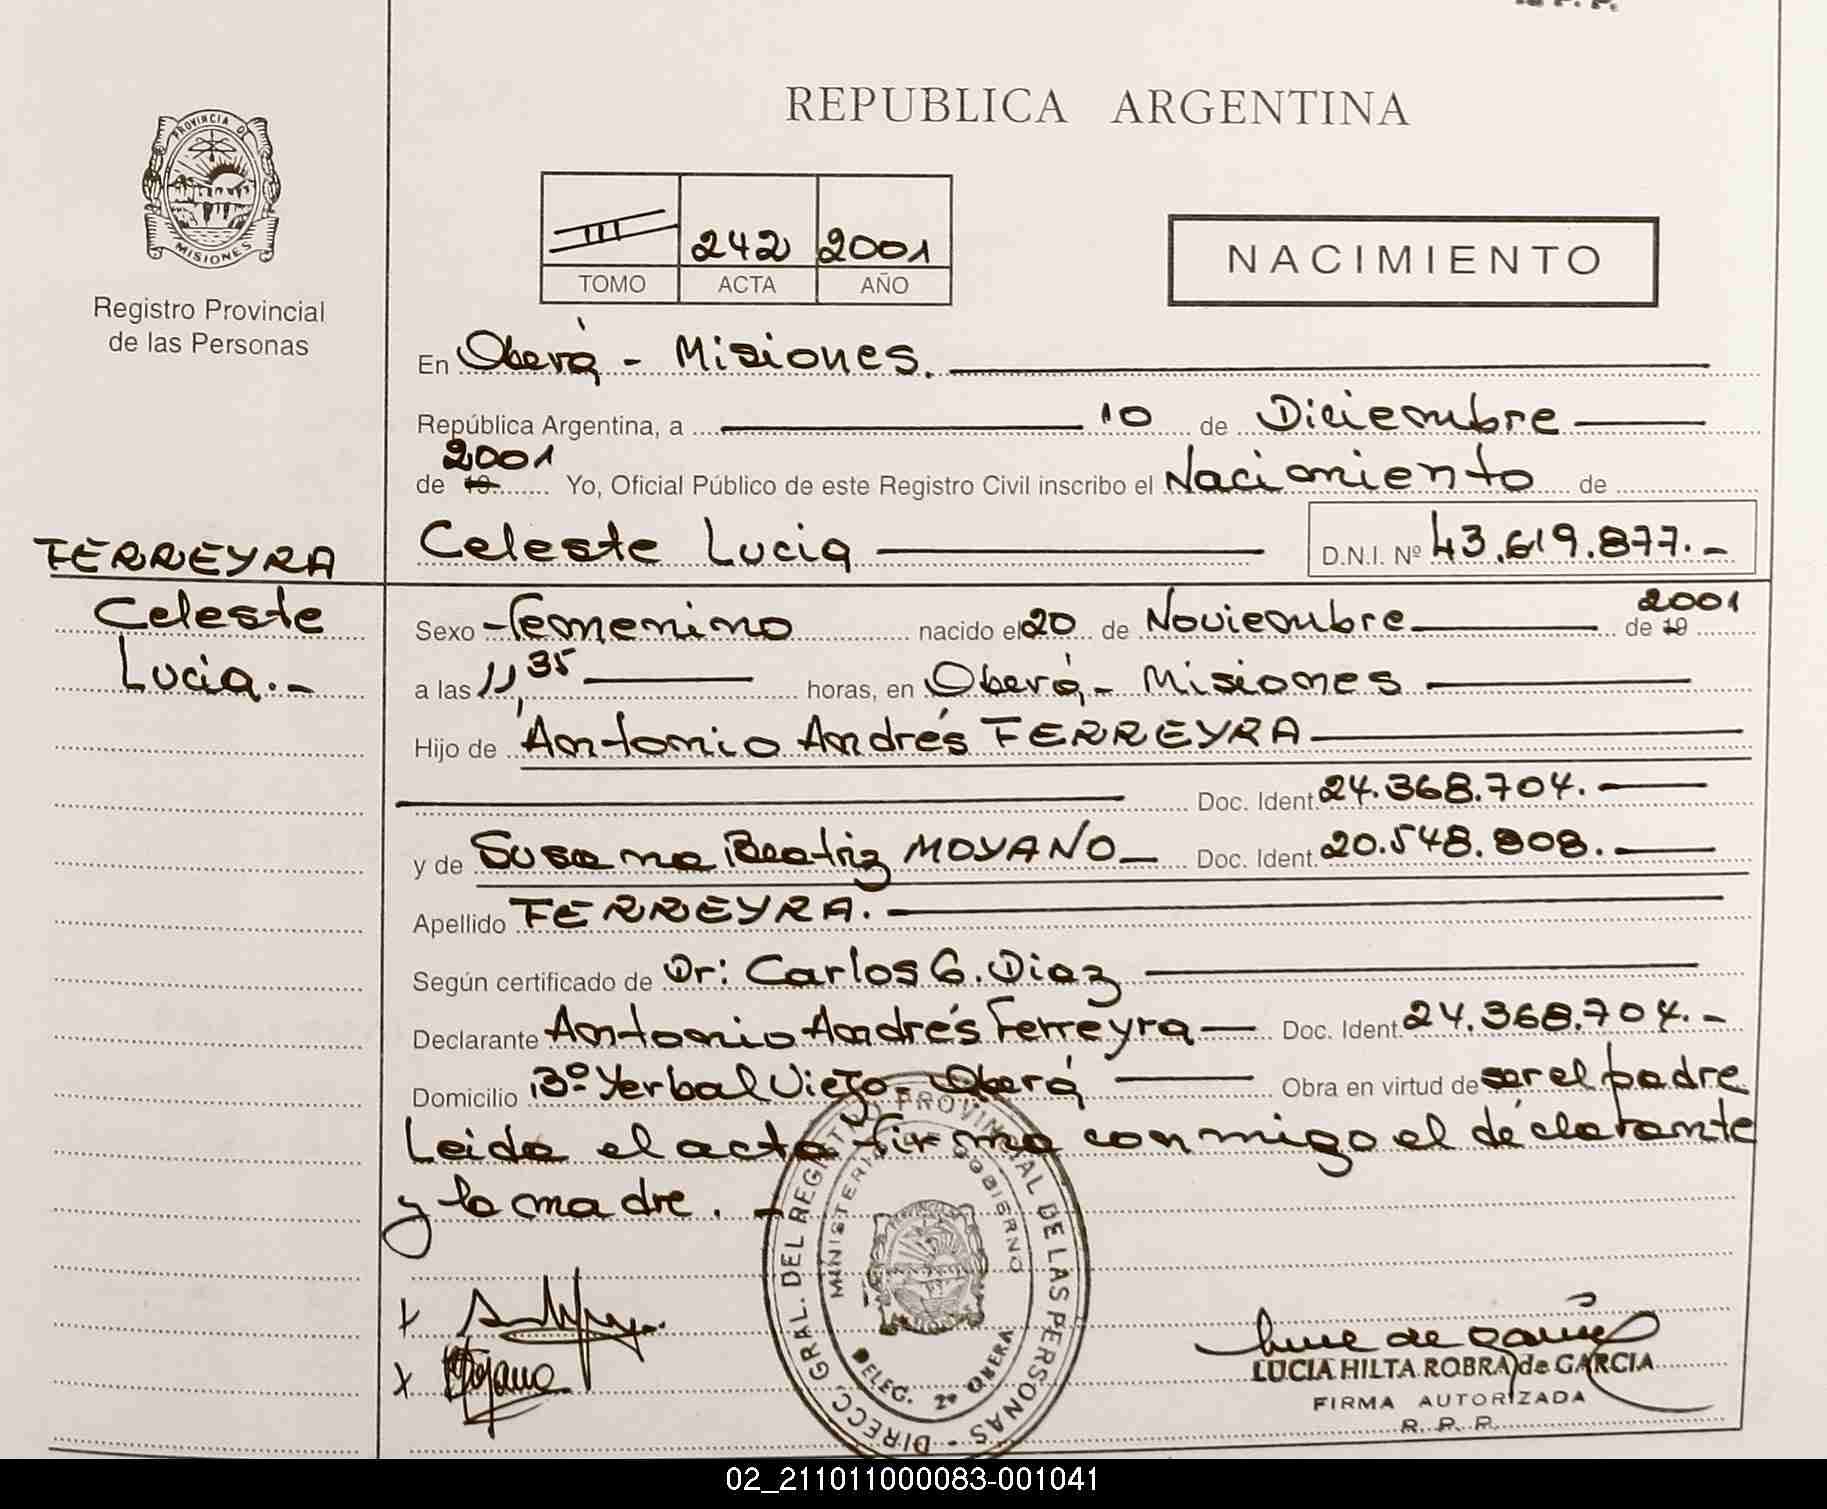 REPUBLICA ARGENTINA
PROVINCIA DE
MISIONES
Registro Provincial
de las Personas
242 2001
TOMO ACTA AÑO
NACIMIENTO
En Oberá - Misiones.
República Argentina, a 10 de Diciembre
de 19 2001 Yo, Oficial Público de este Registro Civil inscribo el Nacimiento de
Celeste Lucia D.N.I. Nº 43.619.877.-
FERREYRA
Celeste
Lucia.-
Sexo Femenino nacido el 20 de Noviembre de 19 2001
a las 11,35 horas, en Oberá - Misiones
Hijo de Antonio Andrés FERREYRA
Doc. Ident. 24.368.704.
y de Susana Beatriz MOYANO Doc. Ident. 20.548.808.
Apellido FERREYRA.
Según certificado de Dr: Carlos G. Diaz
Declarante Antonio Andrés Ferreyra Doc. Ident. 24.368.704.-
Domicilio Bº Yerbal Viejo - Oberá Obra en virtud de ser el padre
Leida el acta firma conmigo el declarante
y la madre.-
DIRECC. GRAL. DEL REGISTRO PROVINCIAL DE LAS PERSONAS -
MINISTERIO GOBIERNO
DELEG. 2º OBERA
x
x Moyano
LUCIA HILTA ROBRA de GARCIA
FIRMA AUTORIZADA
R. P. P.
02_211011000083-001041